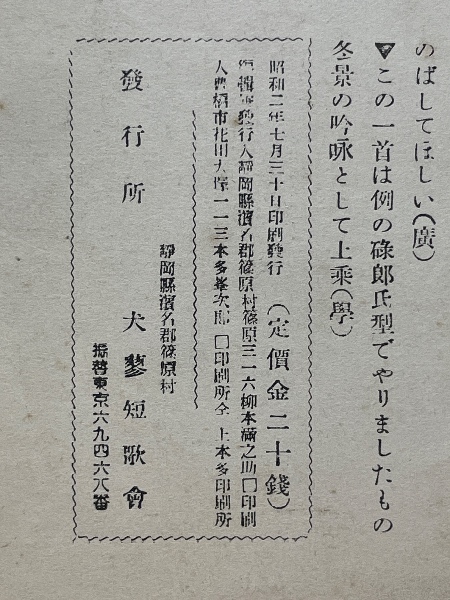 のばしてほしい(廣)
▼この一首は例の碌郎氏型でやりましたもの
冬景の吟咏として上乘(學)
昭和二年七月三十日印刷發行 (定價金二十錢)
編輯兼發行人靜岡縣濱名郡篠原村篠原三一六柳本滿之助□印刷
人豊橋市花田大塚一一三本多峯次郎□印刷所仝上本多印刷所
靜岡縣濱名郡篠原村
發行所 犬蓼短歌會
振替東京六九四六八番